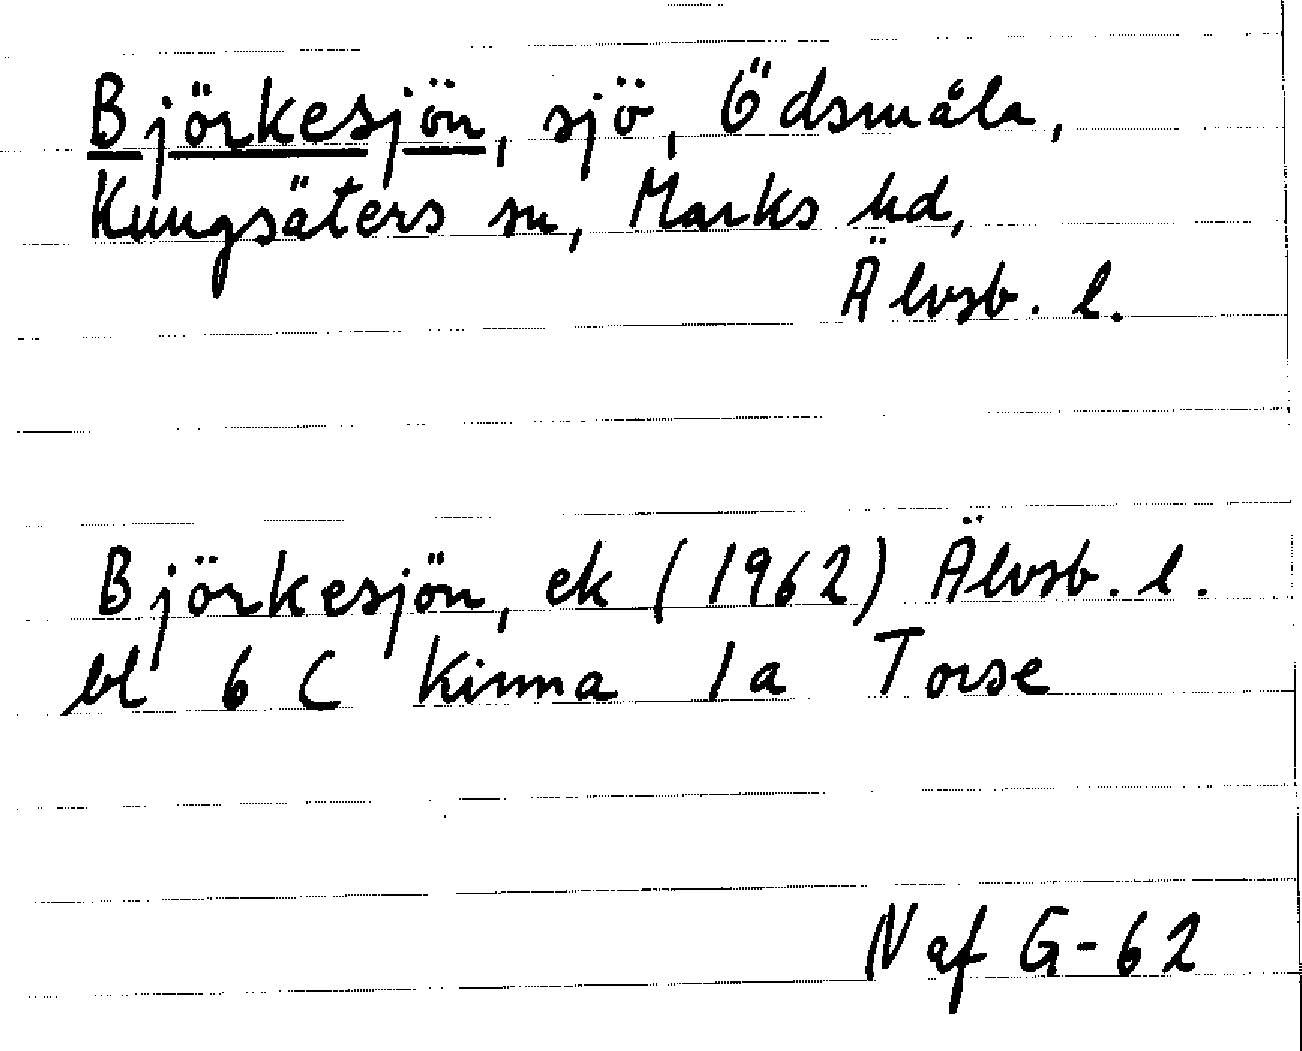 Björkesjön, sjö, Ödsmåla,
Kungsäters sn, Marks hd,
Älvsb. l.
Björkesjön, ek (1962) Älvsb. l.
bl 6 C Kinna 1a Torse
N af G-62